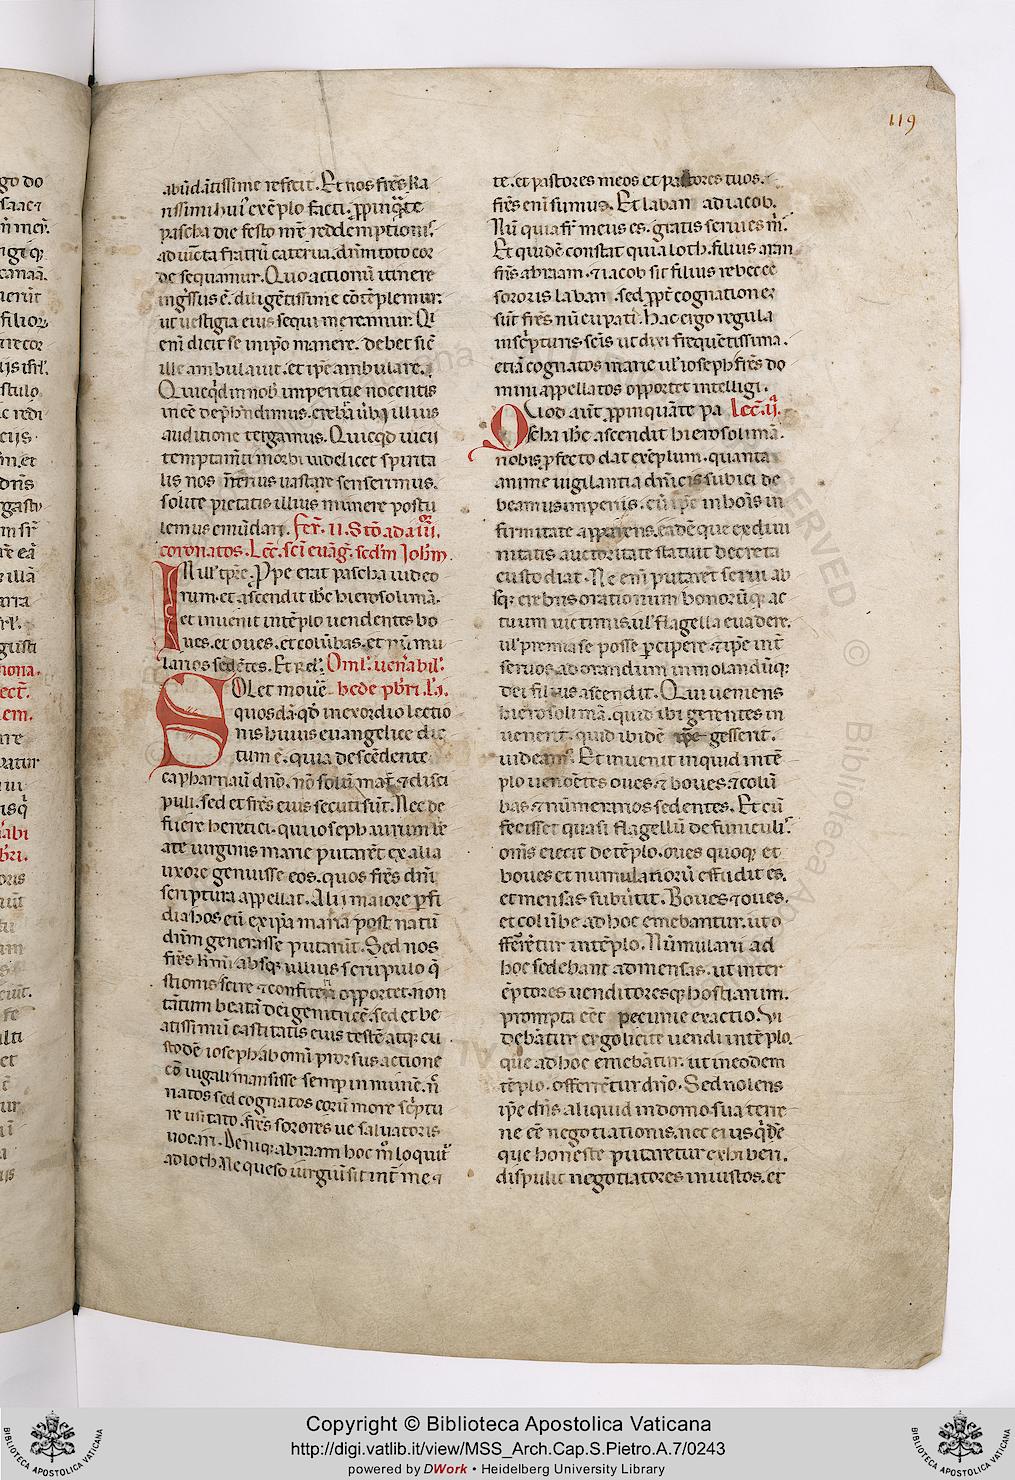 119
abūdātissime refecit. Et nos frēs ka
rissimi hui' exēplo facti. ꝓpinq̄te
pascha die festo nr̄e reddemptionis.
adiūcta fratrū caterua. dn̄m toto cor
de sequamur. Quo actionū itinere
ingr̄ssus ē. diligētissime cōtēplemur.
ut uestigia eius sequi mereamur. Qi
eni dicit se in ipō manere. debet sic̄
ille ambulauit. et ip̄e ambulare.
Quicq̄d in nob̄ impentie nocentis
inēe dep̄hndimus. crebr̄ ūbi illius
auditione tergamus. Quicq̄d uicii
temptam̄ti morbi uidelicet spirita
lis nos
solite pietatis illius munere postu
lemus emūdari. Fer̄. II. Sc̄o ad a IIII.
coronatos. Lec̄. sc̄i euāḡ. sed̄m Joh̄m.
In ill' tp̄re. Ꝓpe erat pascha iudeo
rum. et ascendit ih̄c hierosolimā.
et inuenit in tēplo uendentes bo
ues. et oues. et colūbas. et nūmu
larios sedētes. Et rel'. Oml'. uen̄abil'.
Solet mouē bede p̄bri. l'. I.
quosdā. qđ in exordio lectio
nis huius euangelice dic
tum ē. quia descēdente
capharnaū dn̄o. nō solū mat̄ ⁊ disci
puli. sed et fr̄es eius secuti sūt. Nec de
fuere heretici. qui ioseph uirum be
ate uirginis marie putarēt ex alia
uxore genuisse eos. quos fr̄es dn̄i
scriptura appellat. Alii maiore p̄fi
dia hos eū ex ip̄a maria post natū
dn̄m generasse putarūt. Sed nos
fr̄es kmi absq ullius scrupulo q̄
stionis scire ⁊ confiteri oportet. non
tātum beatā dei genitricē. sed et be
atissimū castitatis eius testē atq cu
stodē ioseph ab omi prorsus actione
cōiugali mansisse semp inmunē. n̄
natos sed cognatos eorū more sc̄ptu
re usitato. fr̄es sorores ue saluatoris
uocari. Deniq abraam hoc mō loquit̄
ad loth. Ne queso iurgiū sit int̄ me ⁊
te. et pastores meos et pastores tuos.
fr̄es eni sumus. Et laban ad iacob.
Nū quia fr̄ meus es. gratis seruies m̄.
Et quidē constat quia loth. filius aran
fr̄is abraam. ⁊ iacob sit filius rebecce
sororis laban. sed ꝓpt̄ cognationē
sūt fr̄es nūcupati. Hac ergo regula
in sc̄pturis sc̄is ut dixi frequētissima.
etiā cognatos marie ul' ioseph fr̄es do
mini appellatos opportet intelligi.
Quod aūt ꝓpinquāte pa Lec̄. II.
scha ih̄c ascendit hierosolimā.
nobis ꝓfecto dat exēplum. quanta
anime uigilantia dn̄icis subici de
beamus impenis. cū ip̄e in hōis in
firmitate apparens. eadē que ex diui
nitatis auctoritate statuit decreta
custodiat. Ne eni putarēt serui ab
sq crebris orationum bonorūq ac
tuum uictimis. ul' flagella euadere.
ul' premia se posse percipere. ⁊ ip̄e int̄
seruos adorandum inmolandūq
dei filius ascendit. Qui ueniens
hierosolimā. quid ibi gerentes in
uenerit. quid ibidē ip̄e gesserit.
uideam'. Et inuenit inquid in tē
plo uendētes oues ⁊ boues. ⁊ colū
bas ⁊ nūmerarios sedentes. Et cū
fecisset quasi flagellū de funiculis.
om̄s eiecit de tēplo. oues quoq et
boues et numulariorū effudit es.
et mensas subūtit. Boues ⁊ oues.
et colūbe ad hoc emebantur. ut o
fferrētur in tēplo. Nūmularii ad
hoc sedebant ad mensas. ut inter
ēptores uenditoresq hostiarum.
prompta eēt pecunie exactio. Vi
debātur ergo licite uendi in tēplo.
que ad hoc emebātur. ut in eodem
tēplo offerrētur dn̄o. Sed nolens
ip̄e dn̄s aliquid in domo sua terre
ne eē negotiationis. nec eius q̄dē
que honeste putaretur exhiberi.
dispulit negotiatores iniustos. et
Copyright © Biblioteca Apostolica Vaticana
http://digi.vatlib.it/view/MSS_Arch.Cap.S.Pietro.A.7/0243
powered by DWork • Heidelberg University Library
BIBLIOTECA APOSTOLICA VATICANA
BIBLIOTECA APOSTOLICA VATICANA